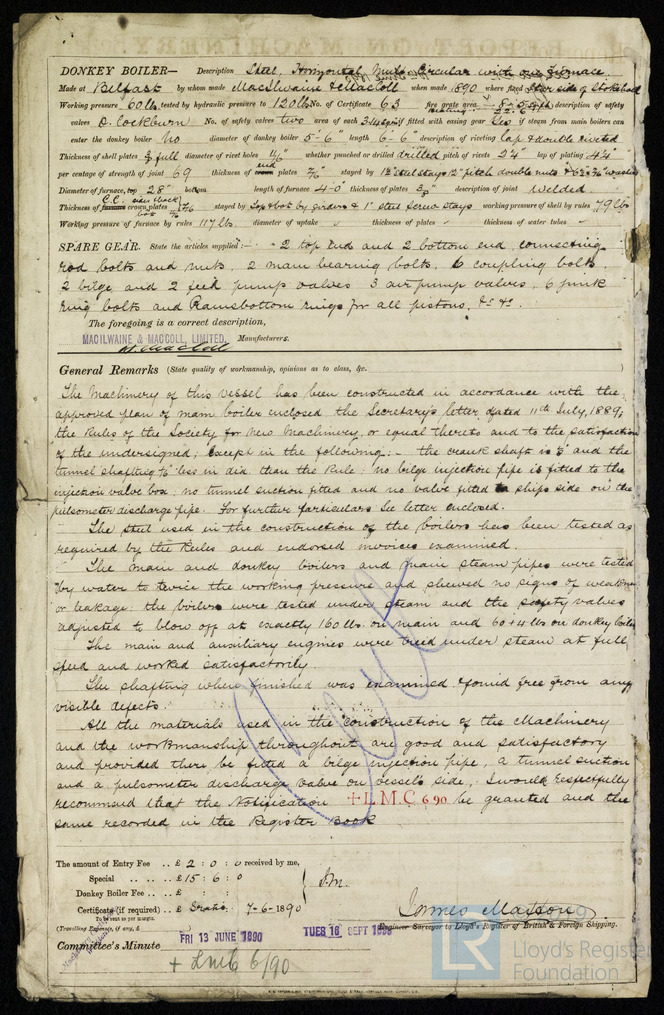 DONKEY BOILER— Description Steel, Horizontal Mult. Circular with one Furnace
Made at Belfast by whom made MacIlwaine & MacColl when made 1890 where fixed Star side of Stokehold
Working pressure 60 lbs tested by hydraulic pressure to 120 lbs No. of Certificate 63 fire grate area description of safety
valves D. Cockburn No. of safety valves two area of each fitted with easing gear Yes if steam from main boilers can
enter the donkey boiler No diameter of donkey boiler 5'-6" length 6'-6" description of riveting lap & double riveted
Thickness of shell plates full diameter of rivet holes 11/16" whether punched or drilled drilled pitch of rivets 2¼" lap of plating 4¼"
per centage of strength of joint 69 thickness of end plates stayed by steel stays 12" pitch double nuts & washers
Diameter of furnace, top 28" bottom length of furnace 4-0" thickness of plates 3/8" description of joint Welded
Thickness of C.C. plates stayed by Top & bot by girders & 1" steel screw stays working pressure of shell by rules 79 lbs
Working pressure of furnace by rules 117 lbs. diameter of uptake thickness of plates thickness of water tubes
SPARE GEAR. State the articles supplied:— 2 top end and 2 bottom end, connecting
rod bolts and nuts, 2 main bearing bolts, 6 coupling bolts,
2 bilge and 2 feed pump valves 3 air pump valves, 6 junk
ring bolts and Ramsbottom rings for all pistons, &c &c.
The foregoing is a correct description,
MACILWAINE & MACCOLL, LIMITED, Manufacturers.
H. MacColl
General Remarks (State quality of workmanship, opinions as to class, &c. )
The Machinery of this vessel has been constructed in accordance with the
approved plan of main boiler enclosed the Secretary's letter dated 11th July, 1889,
the Rules of the Society for New Machinery or equal thereto and to the satisfaction
of the undersigned; Except in the following:— the crank shaft is and the
tunnel shafting less in dia. than the Rule: no bilge injection pipe is fitted to the
injection valve box: no tunnel suction fitted and no valve fitted to ships side on the
pulsometer discharge pipe. For further particulars see letter enclosed.
The steel used in the construction of the boilers has been tested as
required by the Rules and endorsed invoices examined.
The main and donkey boilers and main steam pipes were tested
by water to twice the working pressure and shewed no signs of weakness
or leakage: the boilers were tested under steam and the safety valves
adjusted to blow off at exactly 160 lbs. on main and 60+4 lbs on donkey boiler
The main and auxiliary engines were tried under steam at full
speed and worked satisfactorily.
The shafting when finished was examined & found free from any
visible defects.
All the materials used in the construction of the Machinery
and the workmanship throughout are good and satisfactory
and provided there be fitted a bilge injection pipe, a tunnel suction
and a pulsometer discharge valve on vessels side, I would respectfully
recommend that the Notification + L.M.C 6.90 be granted and the
same recorded in the Register Book
The amount of Entry Fee .. £ 2 : 0 : 0 received by me,
Special .. .. £ 15 : 6 : 0
Donkey Boiler Fee .. £ : :
Certificate (if required) .. £ Gratis. 7-6-1890
To be sent as per margin.
(Travelling Expenses, if any, £
J.M.
James Maxton
Engineer Surveyor to Lloyd's Register of British & Foreign Shipping.
Committee's Minute
FRI 13 JUNE 1890
TUES 16 SEPT 1890
+ LMC 6/90
LR
Lloyd's Register
Foundation